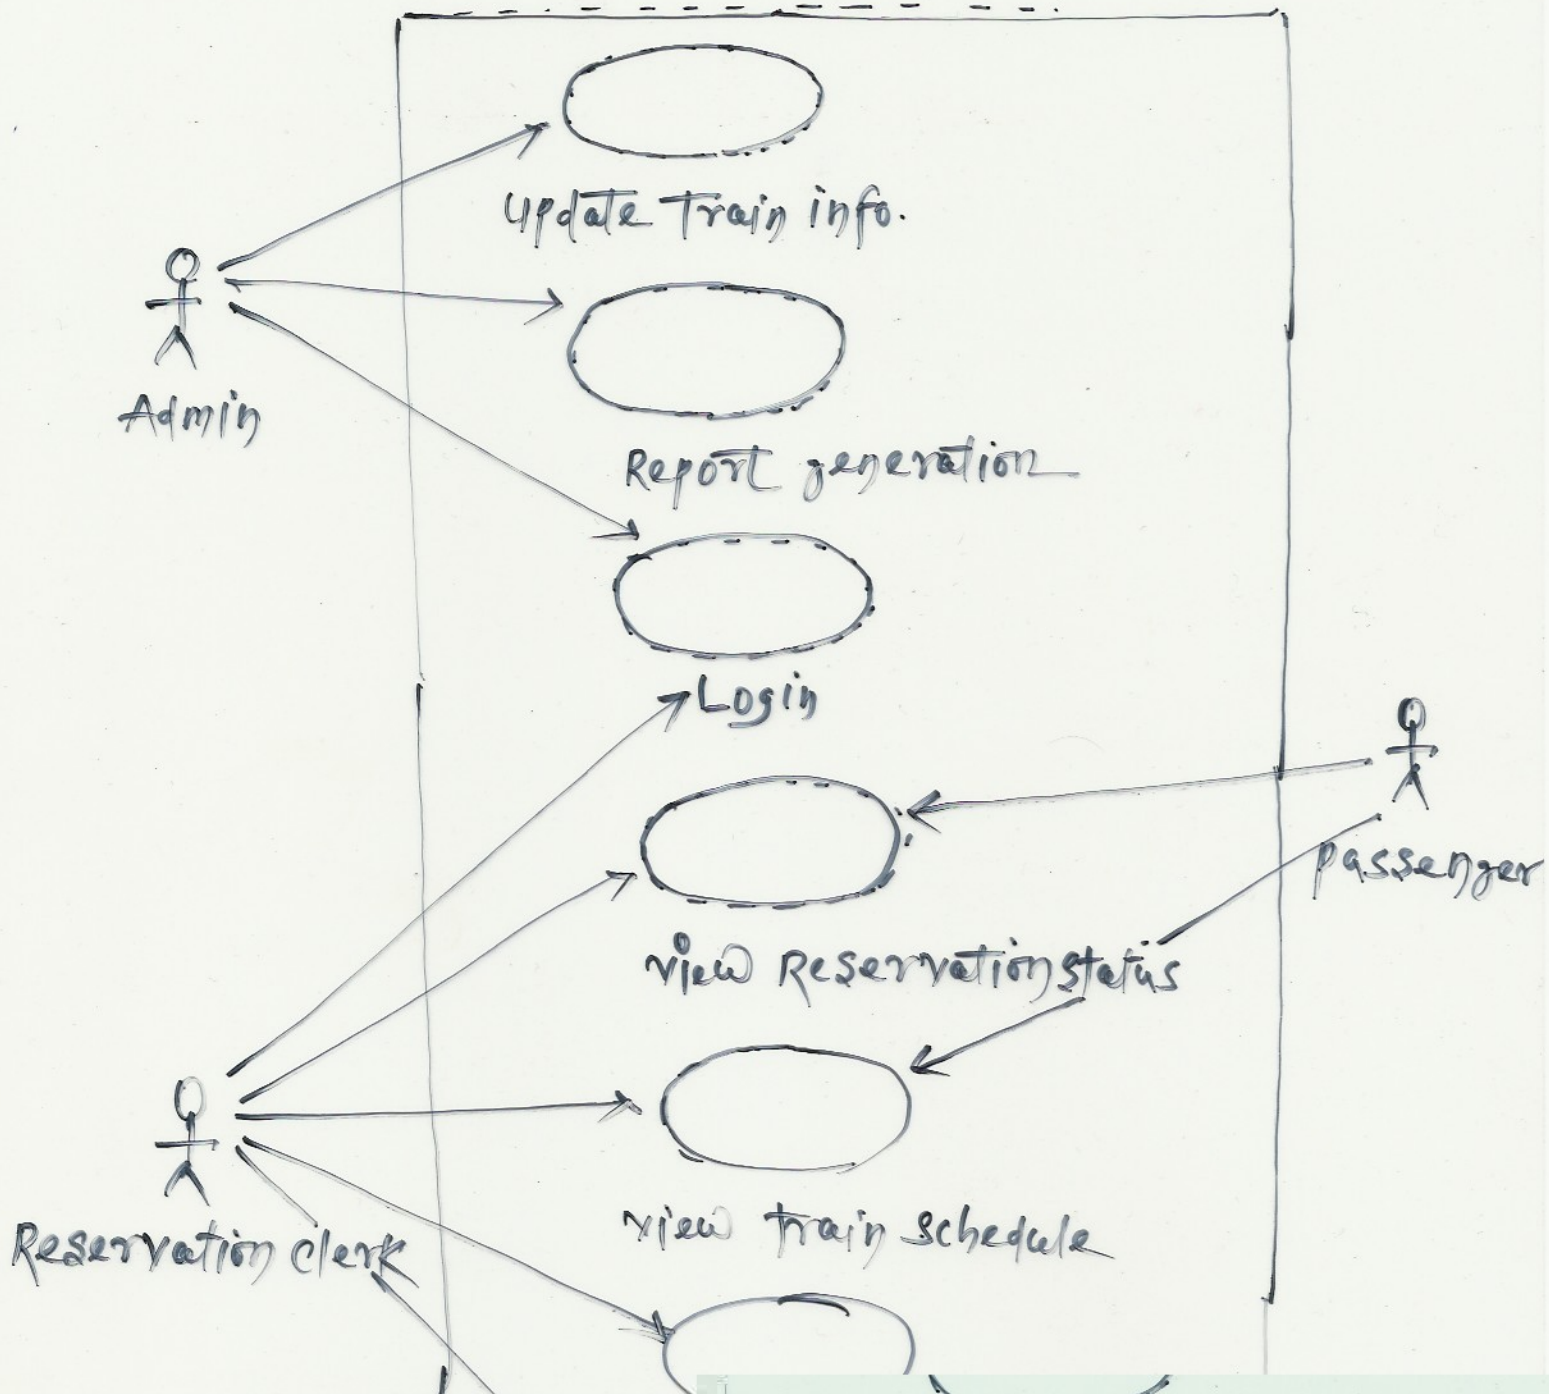 Update Train info.
Admin
Report generation
Login
passenger
view Reservation status
view train schedule
Reservation clerk